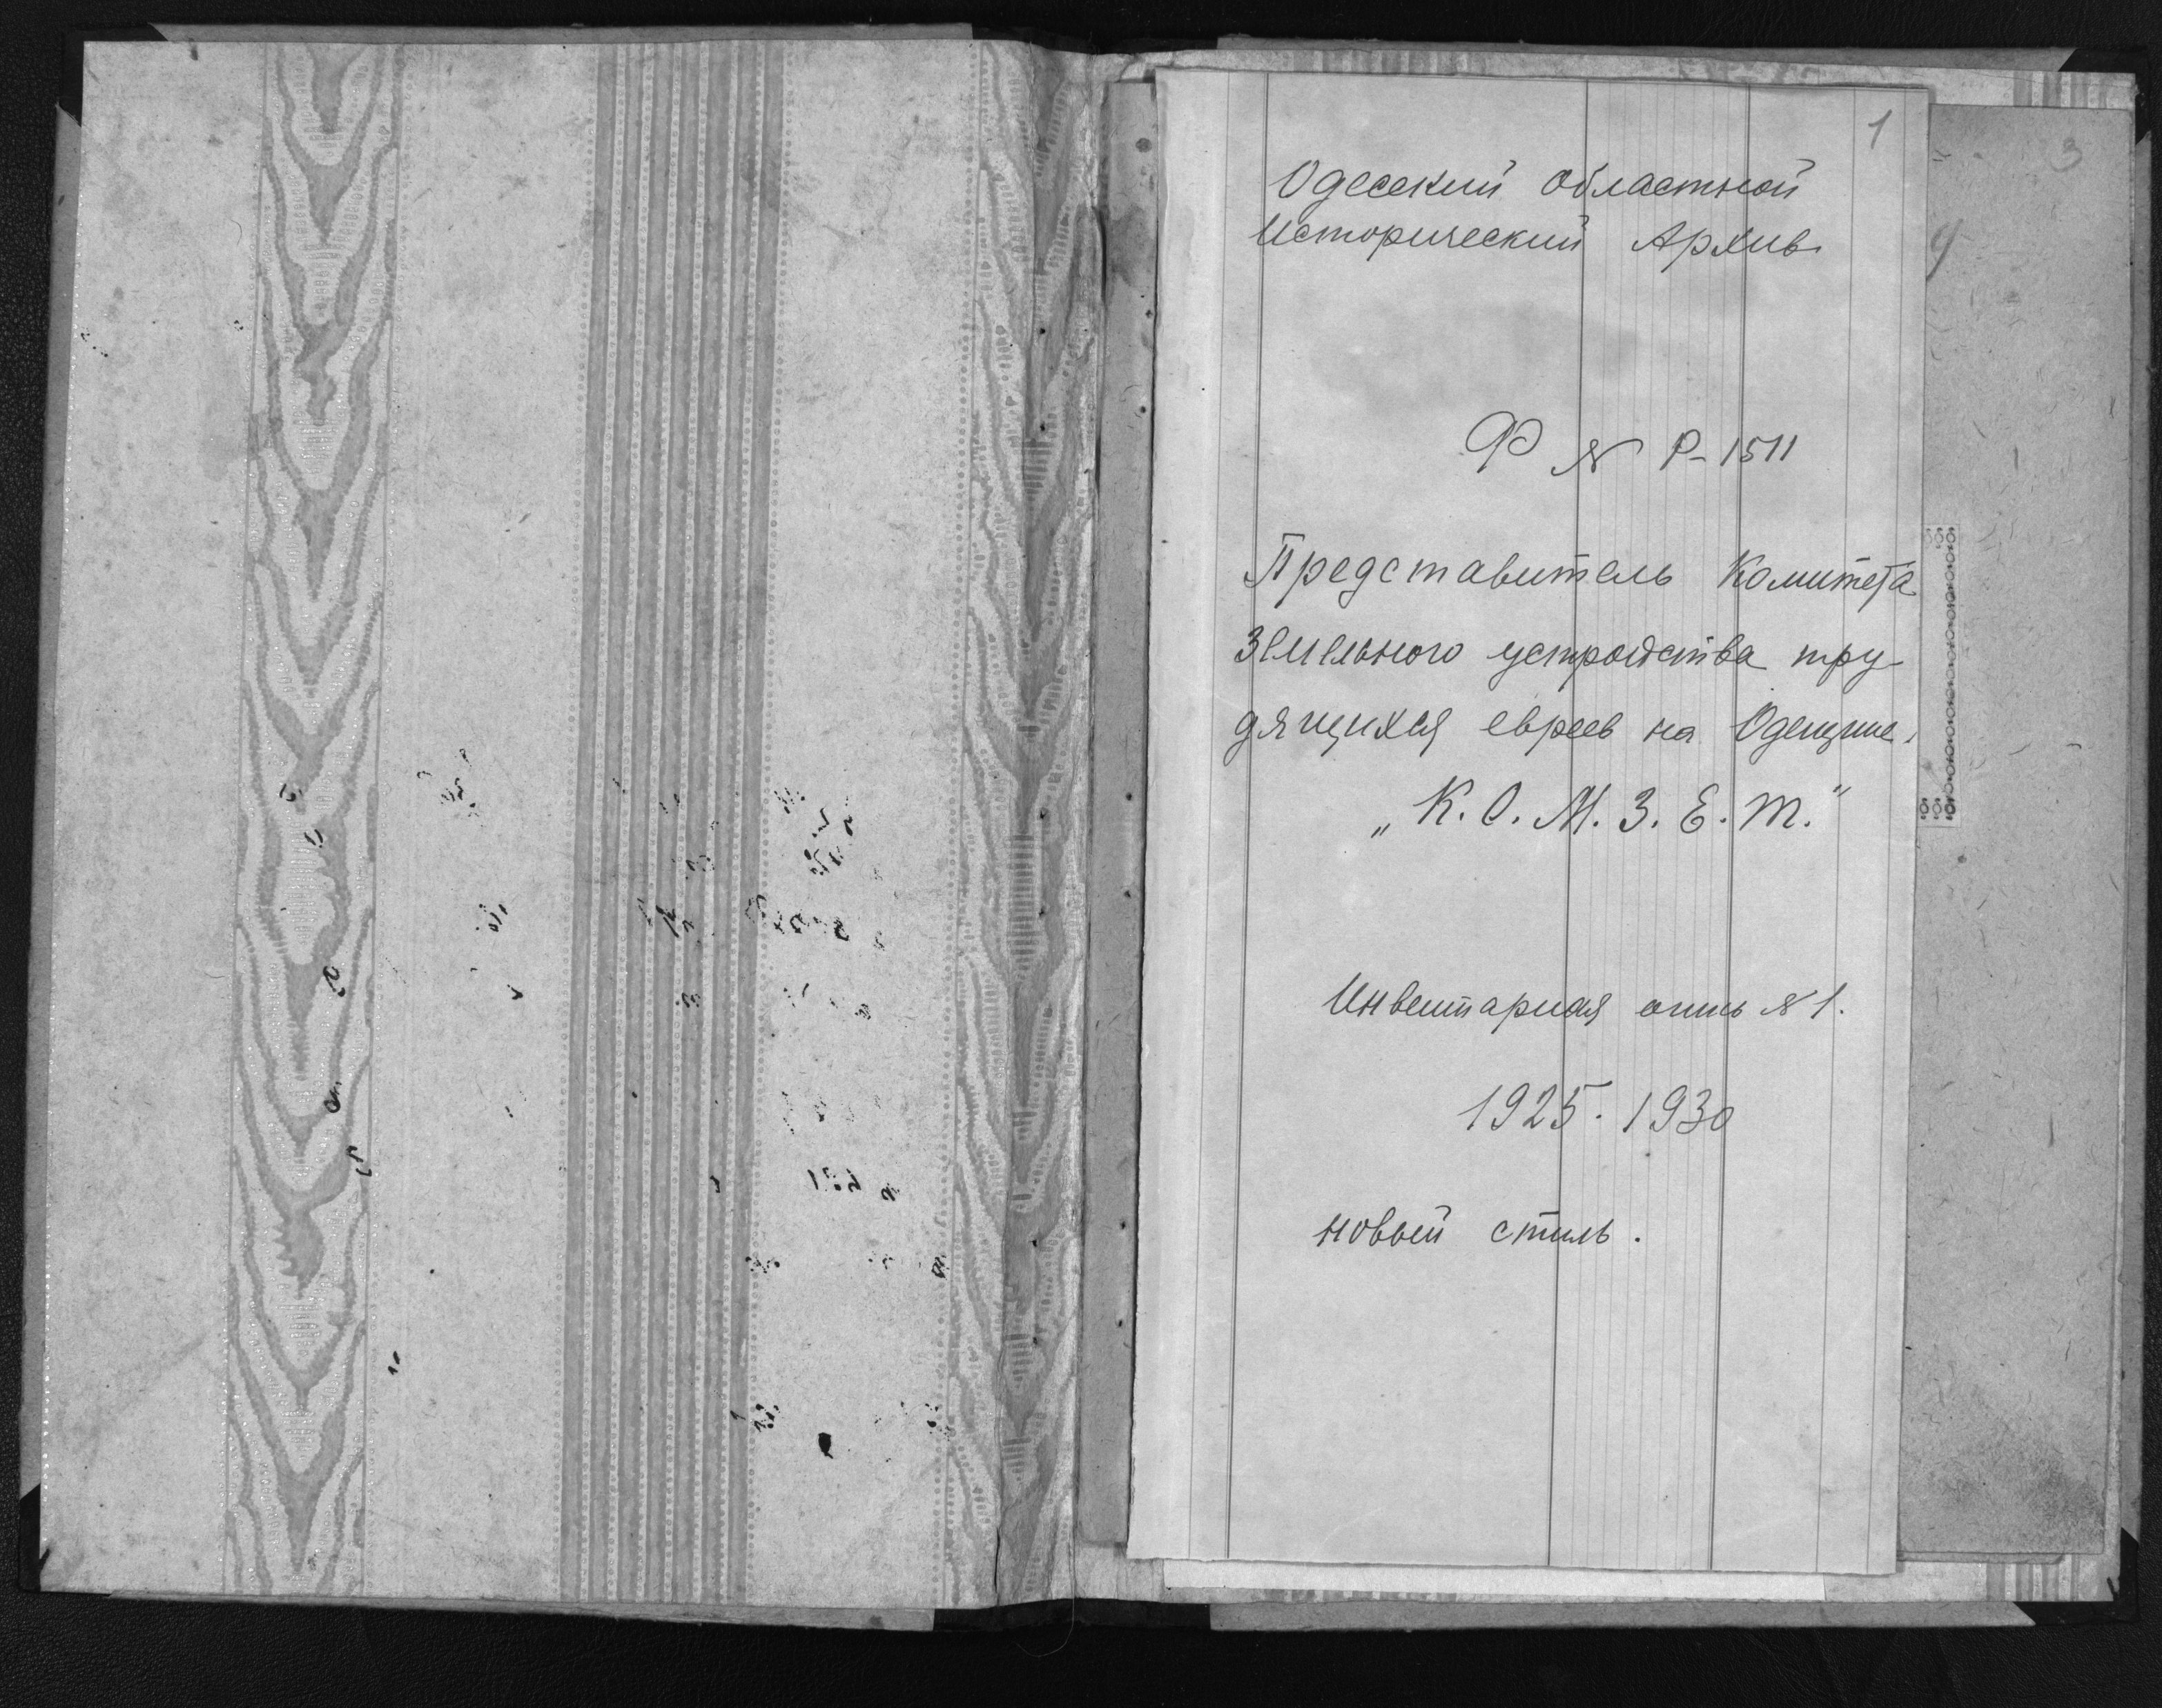 1
3
Одесский областной
Исторический Архив
Ф № Р-1511
Представитель Комитета
Земельного устройства тру-
дящихся евреев на Одещине.
„К. О. М. З. Е. Т."
Инвентарная опись № 1.
1925. 1930
новый стиль.